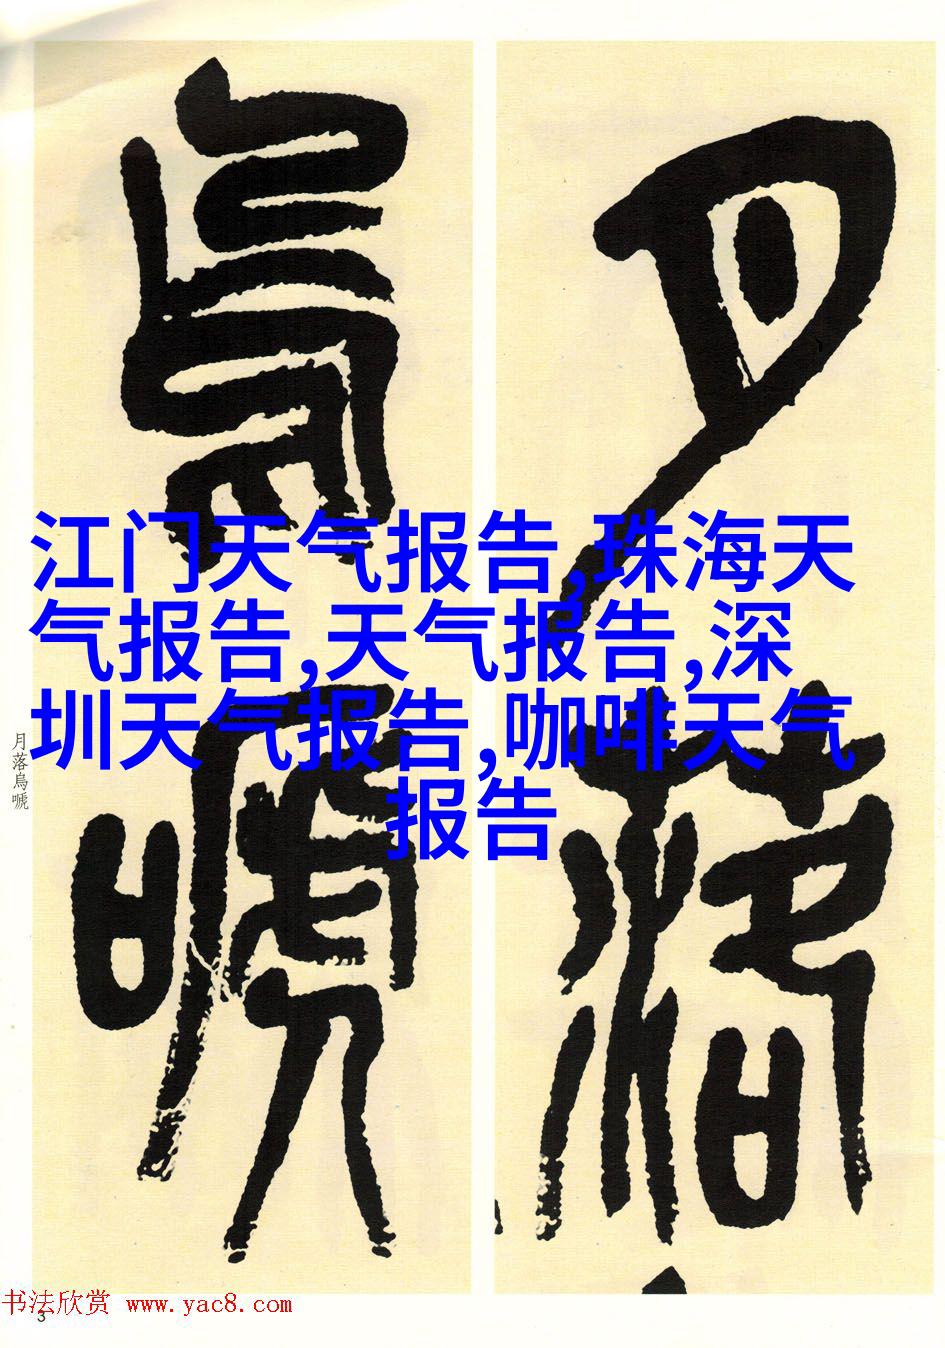 月落
烏嗁
江门天气报告,珠海天
气报告,天气报告,深
圳天气报告,咖啡天气
报告
月落烏嗁
书法欣赏 www.yac8.com
3